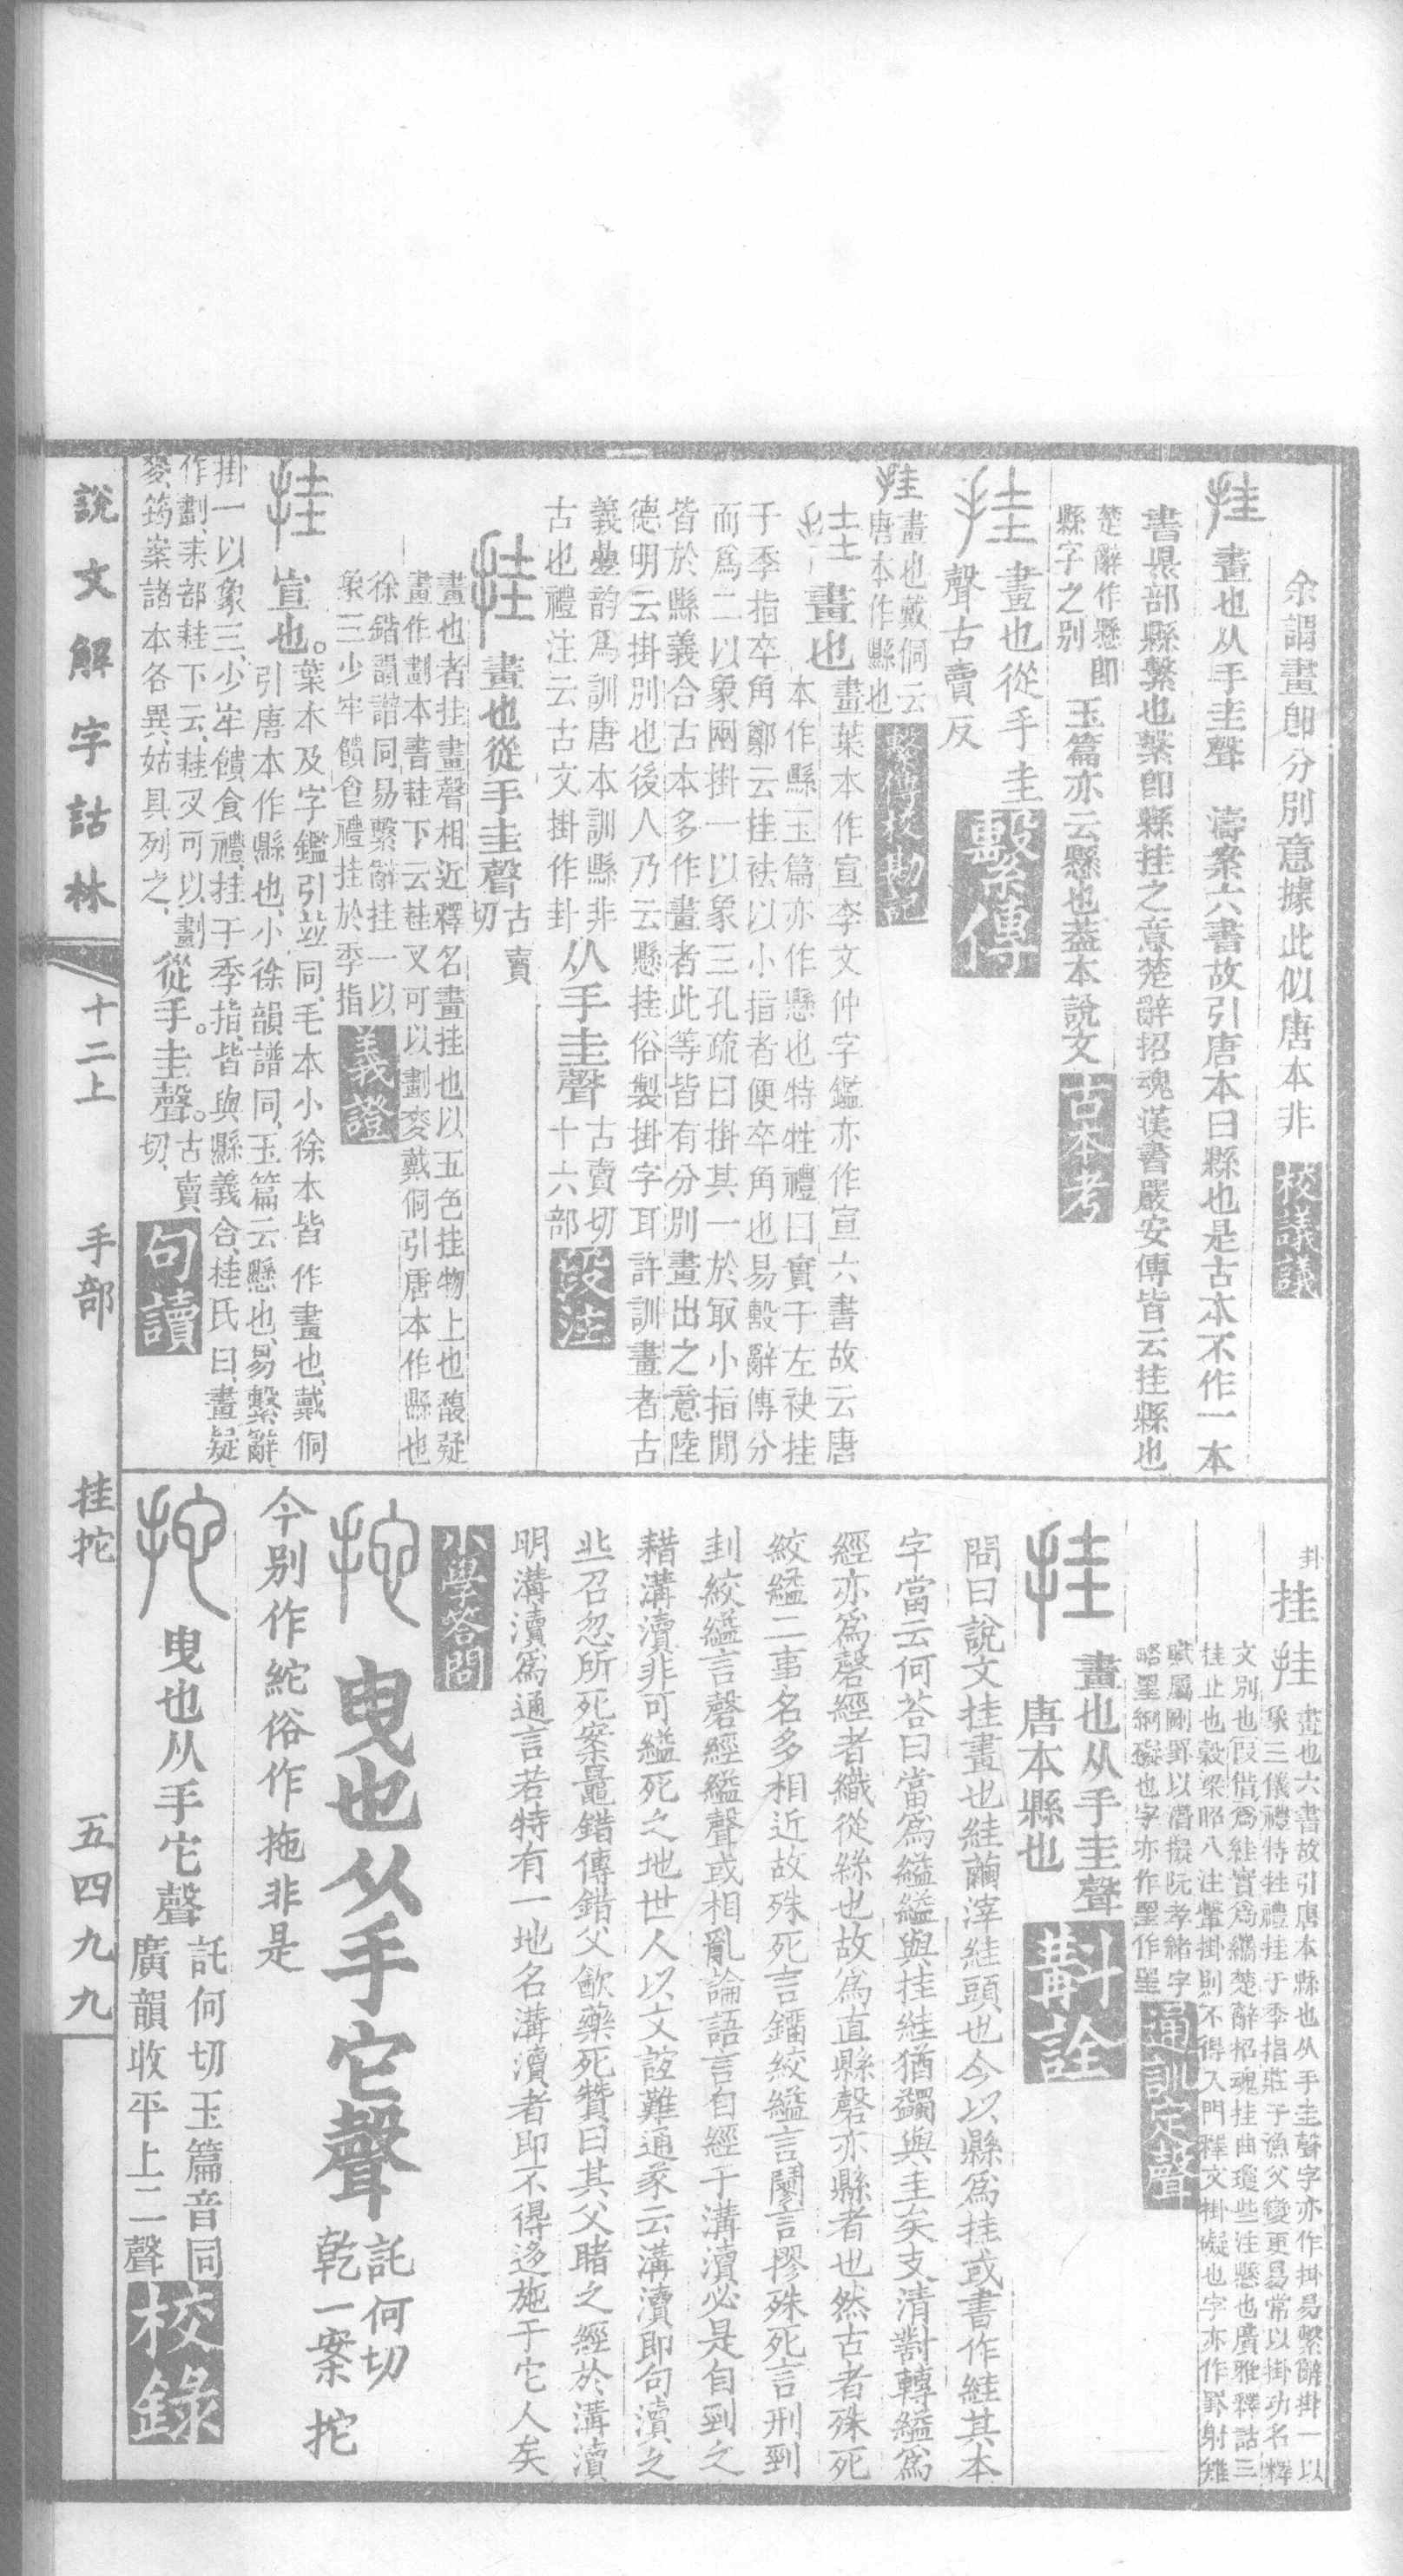 余謂畫卽分別意據此似唐本非 校議議
挂 畫也从手圭聲 濤案六書故引唐本曰縣也是古本不作一本
書㬎部縣繫也繫卽縣挂之意楚辭招魂漢書嚴安傳皆云挂縣也
楚辭作懸卽
縣字之别
玉篇亦云縣也蓋本說文 古本考
挂 畫也從手圭
聲古賣反
繫傳
挂 畫也戴侗云
唐本作縣也
繫傳校勘記
挂 畫也
畫葉本作宣李文仲字鑑亦作宣六書故云唐
本作縣玉篇亦作懸也特牲禮曰實于左袂挂
于季指卒角鄭云挂袪以小指者便卒角也易毄辭傳分
而爲二以象兩掛一以象三孔疏曰掛其一於冣小指閒
皆於縣義合古本多作畫者此等皆有分别畫出之意陸
德明云掛别也後人乃云懸挂俗製掛字耳許訓畫者古
義疊韵爲訓唐本訓縣非
古也禮注云古文掛作卦
从手圭聲
古賣切
十六部
段注
挂 畫也從手圭聲
古賣
切
畫也者挂畫聲相近釋名畫挂也以五色挂物上也馥疑
畫作劃本書䅅下云䅅叉可以劃麥戴侗引唐本作縣也
徐鍇韻譜同易繫辭挂一以
象三少牢饋食禮挂於季指
義證
挂 宣也。
葉本及字鑑引竝同、毛本小徐本皆作畫也、戴侗
引唐本作縣也、小徐韻譜同、玉篇云懸也、易繫辭
掛一以象三、少牢饋食禮、挂于季指、皆與縣義合、桂氏曰、畫疑
作劃、耒部䅅下云、䅅叉可以劃
麥、筠案諸本各異、姑具列之、
從手。圭聲。
古賣
切、
句讀
卦
挂 挂
畫也六書故引唐本縣也从手圭聲字亦作掛易繫辭掛一以
象三儀禮特牲禮挂于季指莊子漁父變更易常以掛功名釋
文别也叚借爲絓實爲繣楚辭招魂挂曲瓊些注懸也廣雅釋詁三
挂止也穀梁昭八注轚掛則不得入門釋文掛礙也字亦作罫射雉
賦屬剛罫以潛擬阮孝緒字
略罣网礙也字亦作罣作罣
通訓定聲
挂 畫也从手圭聲
唐本縣也
斠詮
問曰說文挂畫也絓繭滓絓頭也今以縣爲挂或書作絓其本
字當云何荅曰當爲縊縊與挂絓猶蠲與圭矣支清對轉縊爲
經亦爲磬經者織從絲也故爲直縣磬亦縣者也然古者殊死
絞縊二事名多相近故殊死言鐳絞縊言鬮言摎殊死言刑剄
刲絞縊言磬經縊聲或相亂論語言自經于溝瀆必是自剄之
耤溝瀆非可縊死之地世人以文誼難通㒸云溝瀆即句瀆之
丠召忽所死案鼂錯傳錯父㱃藥死贊曰其父睹之經於溝瀆
明溝瀆爲通言若特有一地名溝瀆者即不得迻施于它人矣
小學答問
拕 曳也从手它聲
託何切
乾一案拕
今别作䋾俗作拖非是
拕 曳也从手它聲
託何切玉篇音同
廣韻收平上二聲
校錄
說文解字詁林
十二上 手部 挂拕 五四九九